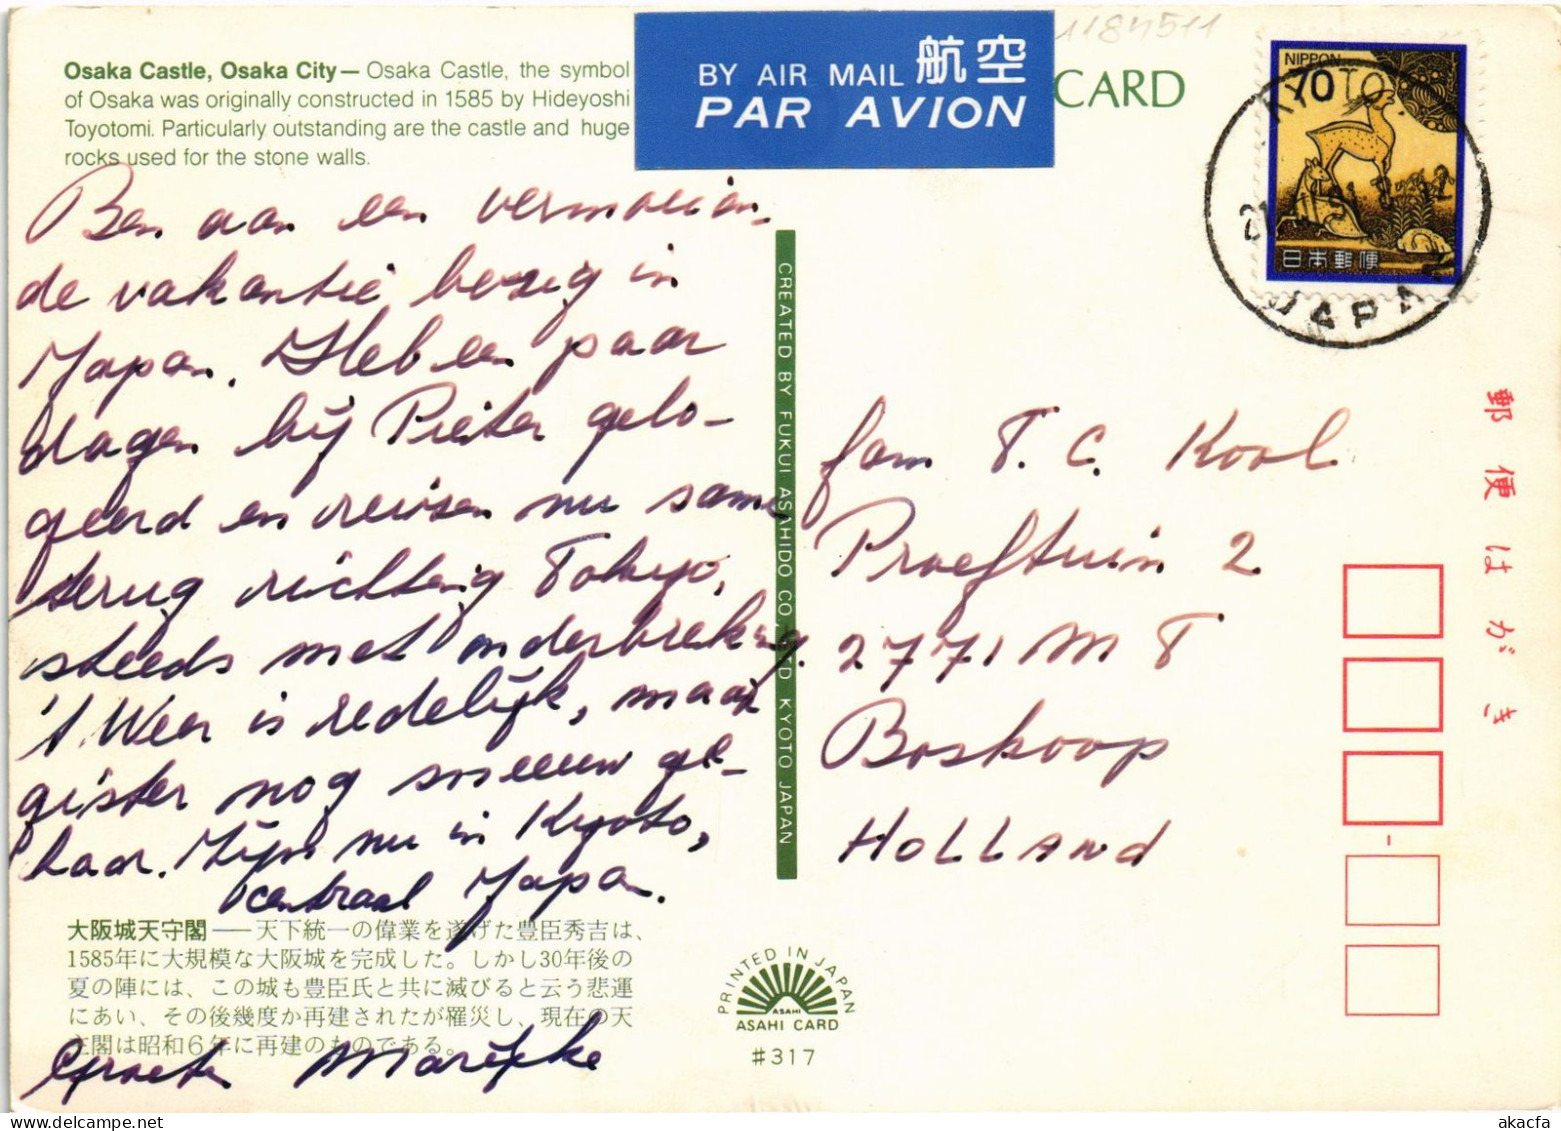 Osaka Castle, Osaka City— Osaka Castle, the symbol
of Osaka was originally constructed in 1585 by Hideyoshi
Toyotomi. Particularly outstanding are the castle and huge
rocks used for the stone walls.
BY AIR MAIL 航空
PAR AVION
CARD
1184511
NIPPON
70
日本郵便
KYOTO
21
JAPAN
Ben aan een vermoeien-
de vakantie bezig in
Japan. Heb een paar
dagen bij Pieter gelo-
geerd en reizen nu samen
terug richting Tokyo,
steeds met onderbreking.
't Weer is redelijk, maar
gister nog sneeuw ge-
had. Zijn nu in Kyoto,
centraal Japan.
Groeten Marijke
CREATED BY FUKUI ASAHIDO CO., LTD KYOTO JAPAN
fam T. C. Kool
Proeftuin 2
2771 MT
Boskoop
HOLLAND
郵便はがき
大阪城天守閣——天下統一の偉業を遂げた豊臣秀吉は、
1585年に大規模な大阪城を完成した。しかし30年後の
夏の陣には、この城も豊臣氏と共に滅びると云う悲運
にあい、その後幾度か再建されたが罹災し、現在の天
主閣は昭和6年に再建のものである。
PRINTED IN JAPAN
ASAHI
ASAHI CARD
#317
www.delcampe.net
akacfa